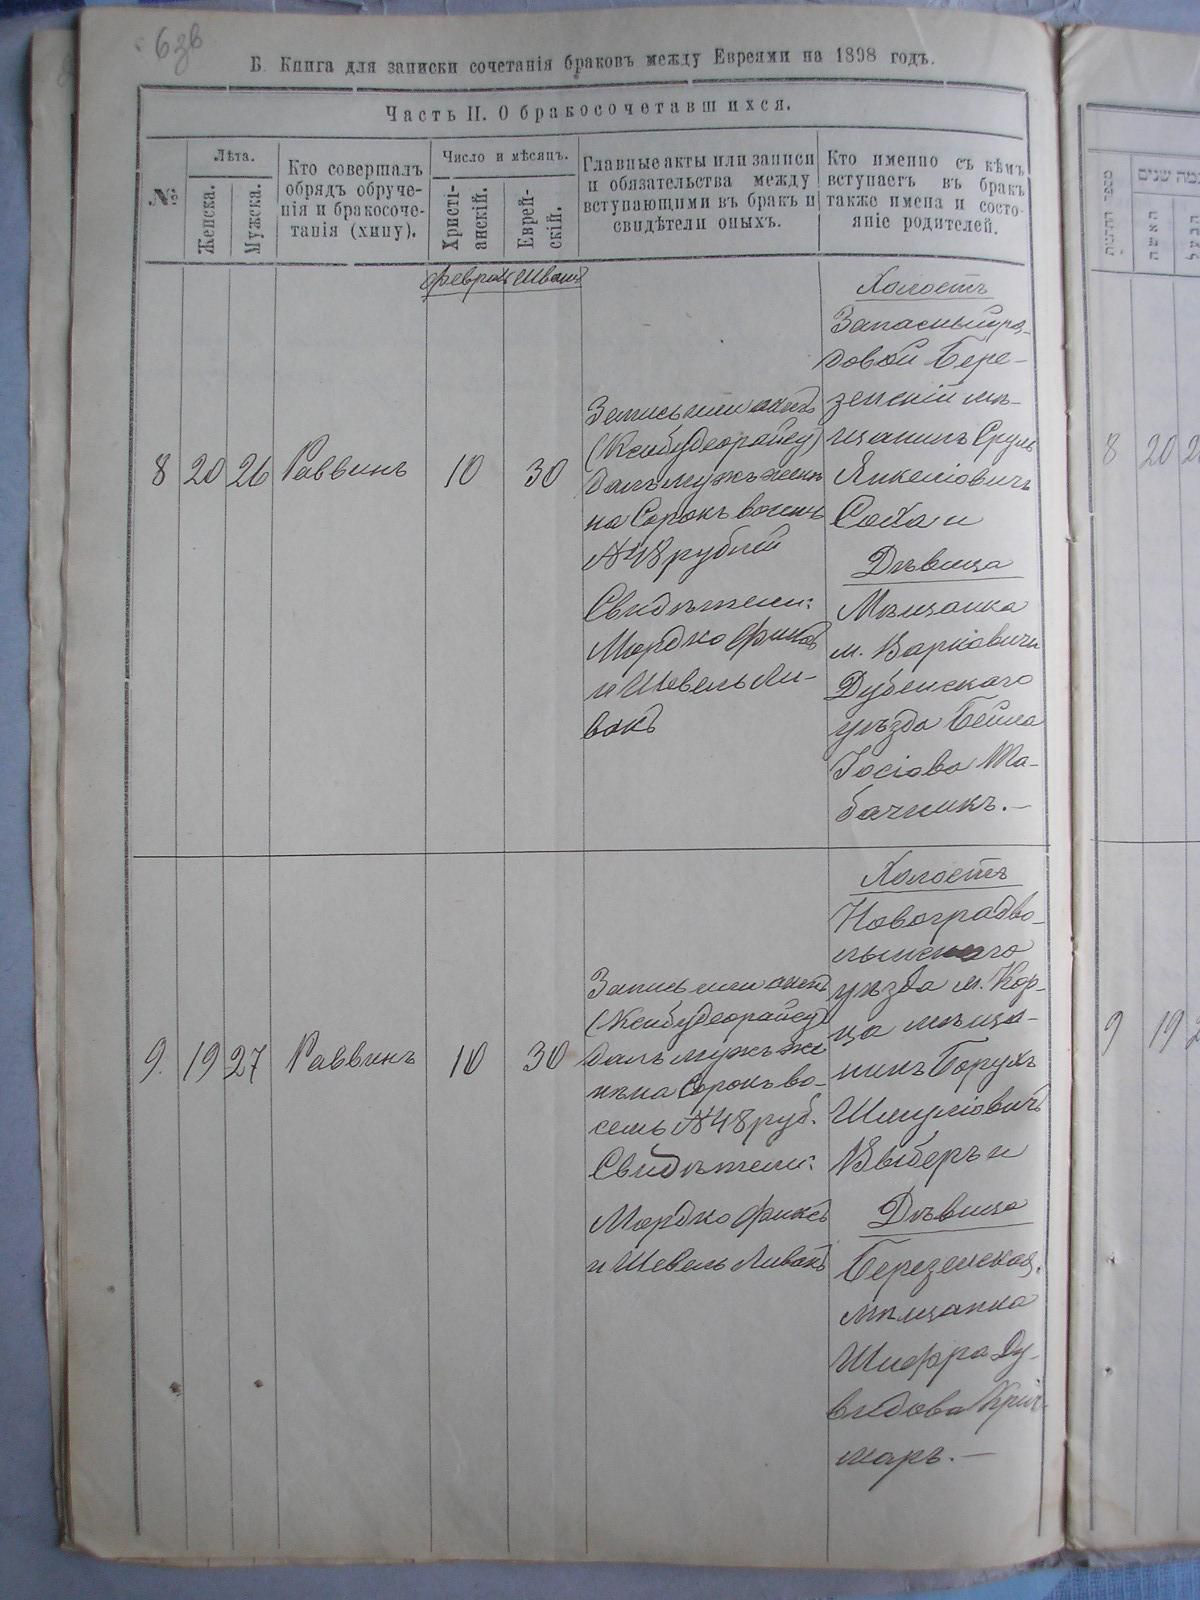 63в
Б. Книга для записки сочетанія браковъ между Евреями на 1898 годъ.
Часть II. О бракосочетавшихся.
№
Лѣта.
Женска.
Мужска.
Кто совершалъ
обрядъ обруче-
нія и бракосоче-
танія (хипу).
Число и мѣсяцъ.
Христі-
анскій.
Еврей-
скій.
Главные акты или записи
и обязательства между
вступающими въ бракъ и
свидѣтели оныхъ.
Кто именно съ кѣмъ
вступаетъ въ бракъ
также имена и состо-
яніе родителей.
מספר החתנות
האשה
Феврал
Шватъ
8
20
26
Раввинъ
10
30
Запись или актъ
(Ксибудеорайсу)
далъ мужъ женѣ
на Сорокъ восемь
№ 48 рублей
Свидѣтели:
Мордко Фиксъ
и Шевель Ли-
вакъ
Холостъ
Запасный ря-
довой Бере-
зенскій мѣ-
щанинъ Сруль
Янкеліовичъ
Соха и
Дѣвица
Мѣщанка
м. Варковичи
Дубенскаго
уѣзда Бейла
Іосіова Та-
бачникъ.—
8
20
9.
19
27
Раввинъ
10
30
Запись или актъ
(Ксибудеорайсу)
далъ мужъ же
нѣ на Сорокъ во-
семь № 48 руб.
Свидѣтели:
Мордко Фиксъ
и Шевель Ливакъ
Холостъ
Новоградво-
лынскаго
уѣзда м. Кор-
ца мѣща-
нинъ Борухъ
Шмуліовичъ
Выберъ и
Дѣвица
Березенская
мѣщанка
Шифра Ду-
видова Крич-
маръ.—
9
19